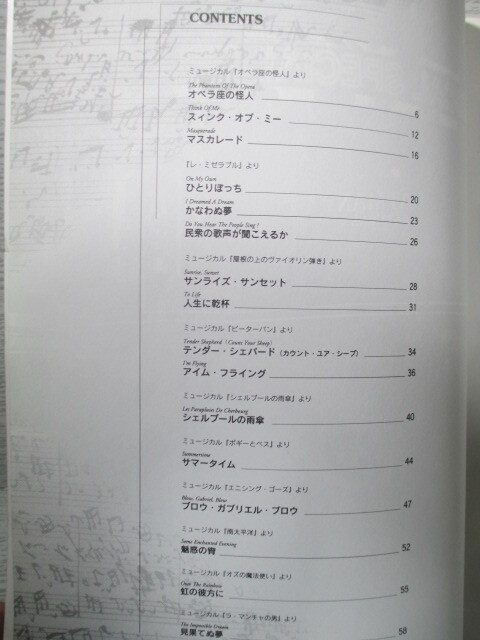 CONTENTS
ミュージカル『オペラ座の怪人』より
The Phantom Of The Opera
オペラ座の怪人 6
Think Of Me
スィンク・オブ・ミー 12
Masquerade
マスカレード 16
『レ・ミゼラブル』より
On My Own
ひとりぼっち 20
I Dreamed A Dream
かなわぬ夢 23
Do You Hear The People Sing?
民衆の歌声が聞こえるか 26
ミュージカル『屋根の上のヴァイオリン弾き』より
Sunrise, Sunset
サンライズ・サンセット 28
To Life
人生に乾杯 31
ミュージカル『ピーターパン』より
Tender Shepherd (Count Your Sheep)
テンダー・シェパード(カウント・ユア・シープ) 34
I'm Flying
アイム・フライング 36
ミュージカル『シェルブールの雨傘』より
Les Parapluies De Cherbourg
シェルブールの雨傘 40
ミュージカル『ポギーとベス』より
Summertime
サマータイム 44
ミュージカル『エニシング・ゴーズ』より
Blow, Gabriel, Blow
ブロウ・ガブリエル・ブロウ 47
ミュージカル『南太平洋』より
Some Enchanted Evening
魅惑の宵 52
ミュージカル『オズの魔法使い』より
Over The Rainbow
虹の彼方に 55
ミュージカル『ラ・マンチャの男』より
The Impossible Dream
見果てぬ夢 58